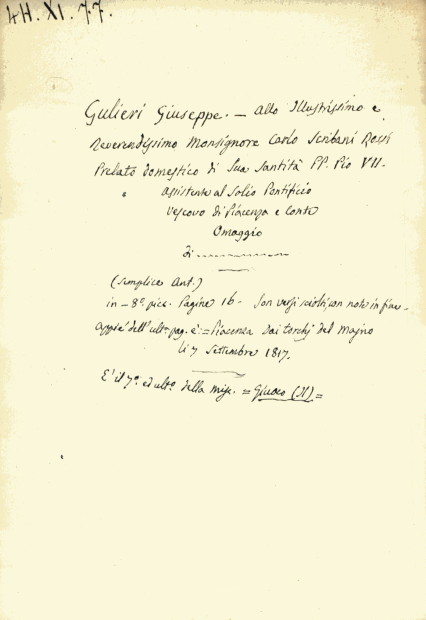 4H. XI. 77.
Gulieri Giuseppe. — Allo Illustrissimo e
Reverendissimo Monsignore Carlo Scribani Rossi
Prelato domestico di Sua Santità PP. Pio VII.
assistente al Solio Pontificio
Vescovo di Piacenza e Conte
Omaggio
di
(semplice Ant.)
in - 8º. picc. Pagine 16 - Son versi sciolti, con note in fine.
Appiè dell'ult. pag. è: = Piacenza dai torchj del Majno
li 7 Settembre 1817.
E' il 7º. ed ultº. della misc. = Giuoco (Il) =